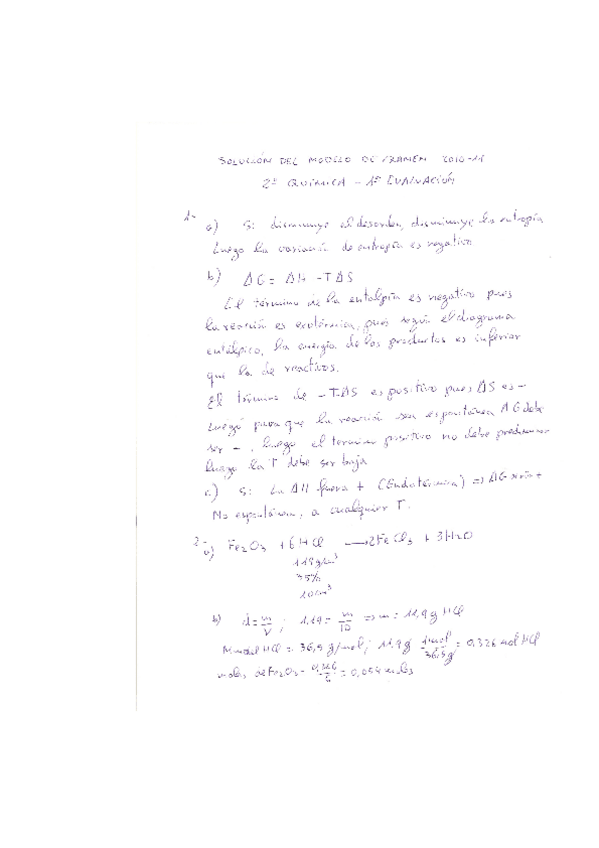 SOLUCIÓN DEL MODELO DE EXAMEN 2010-11
2º QUÍMICA - 1ª EVALUACIÓN
1.- a) Si disminuye el desorden, disminuye la entropía
Luego la variación de entropía es negativa
b) ΔG = ΔH - TΔS
El término de la entalpía es negativo pues
la reacción es exotérmica, pues según el diagrama
entálpico, la energía de los productos es inferior
que la de reactivos.
El término de -TΔS es positivo pues ΔS es -
Luego para que la reacción sea espontánea ΔG debe
ser - , luego el termino positivo no debe predominar
luego la T debe ser baja
c) Si ΔH fuera + (Endotérmica) => ΔG +
No espontánea, a cualquier T.
2.- a) Fe2O3 + 6HCl → 2FeCl3 + 3H2O
1,19 g/cm³
35%
10 cm³
b) d = m/V ; 1,19 = m/10 => m = 11,9 g HCl
M molal HCl = 36,5 g/mol; 11,9 g 1 mol/36,5 g = 0,326 mol HCl
moles de Fe2O3 = 0,326/6 = 0,054 moles